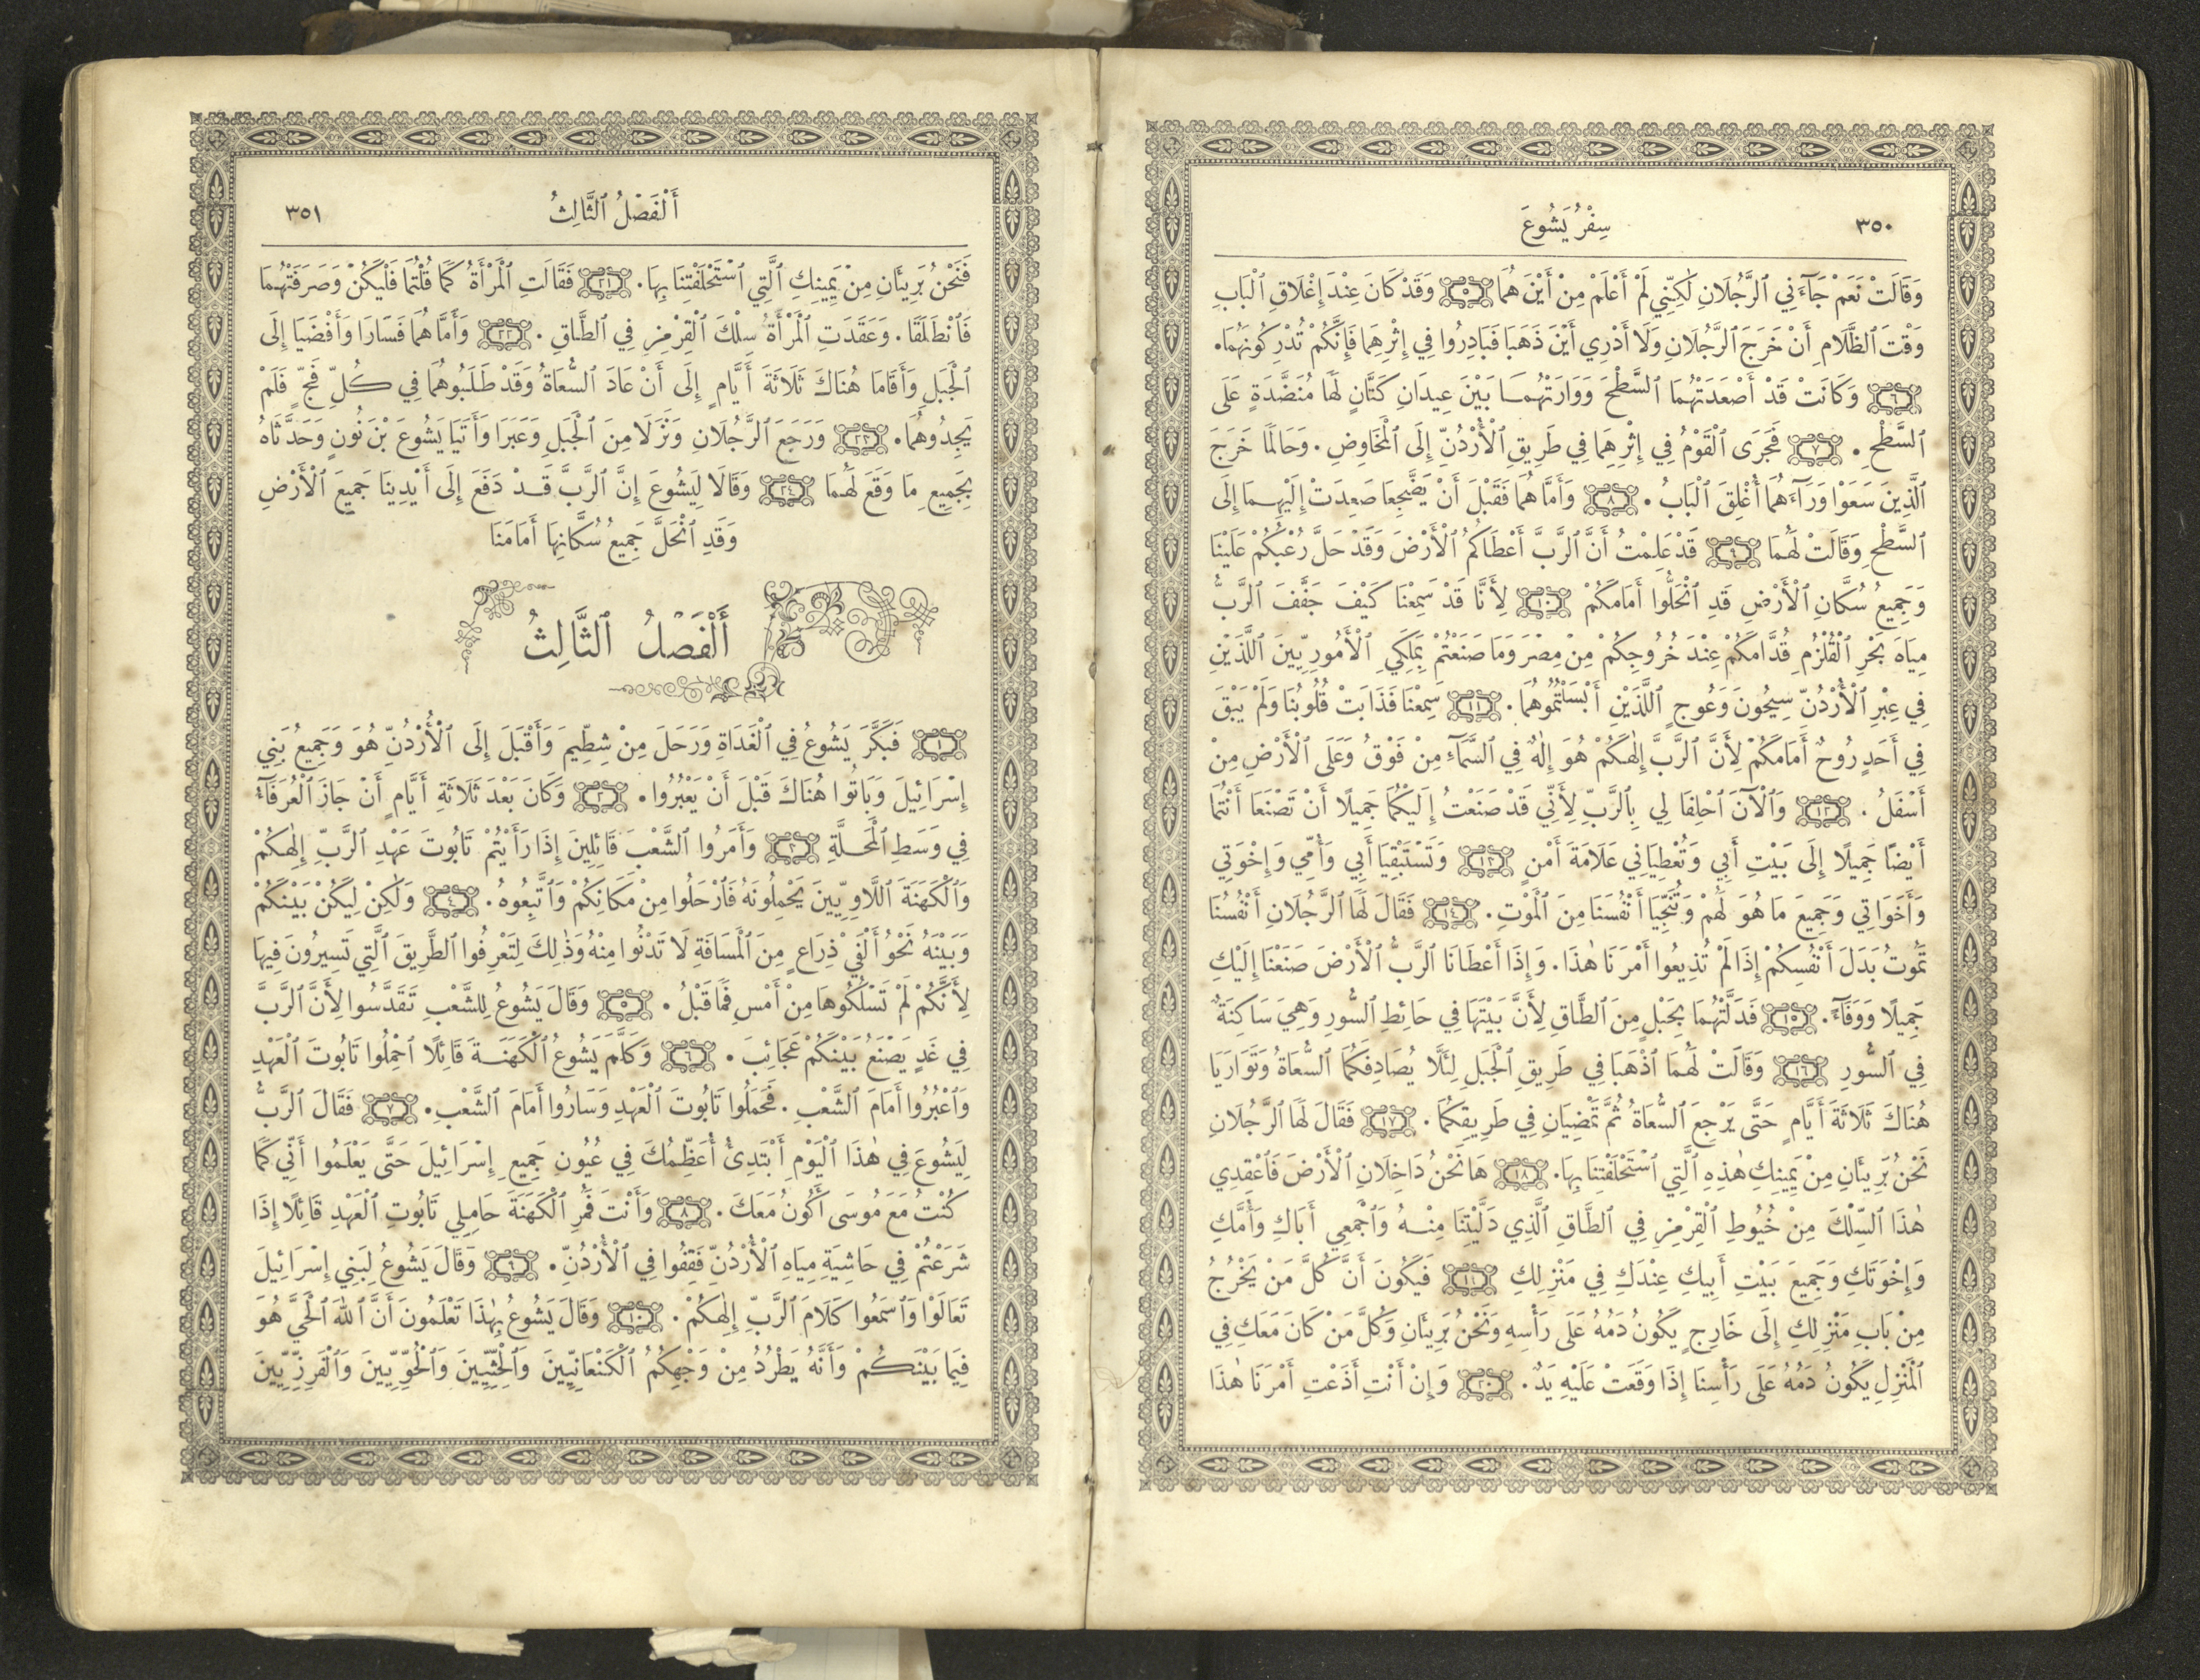 ٣٥٠
سِفْرُ يَشُوعَ
وَقَالَتْ نَعَمْ جَآءَنِي ٱلرَّجُلَانِ لٰكِنِّي لَمْ أَعْلَمْ مِنْ أَيْنَ هُمَا ۝٥ وَقَدْ كَانَ عِنْدَ إِغْلَاقِ ٱلْبَابِ
وَقْتَ ٱلظَّلَامِ أَنْ خَرَجَ ٱلرَّجُلَانِ وَلَا أَدْرِي أَيْنَ ذَهَبَا فَبَادِرُوا فِي إِثْرِهِمَا فَإِنَّكُمْ تُدْرِكُونَهُمَا.
۝٦ وَكَانَتْ قَدْ أَصْعَدَتْهُمَا ٱلسَّطْحَ وَوَارَتْهُمَا بَيْنَ عِيدَانِ كَتَّانٍ لَهَا مُنَضَّدَةٍ عَلَى
ٱلسَّطْحِ. ۝٧ فَجَرَى ٱلْقَوْمُ فِي إِثْرِهِمَا فِي طَرِيقِ ٱلْأُرْدُنِّ إِلَى ٱلْمَخَاوِضِ. وَحَالَمَا خَرَجَ
ٱلَّذِينَ سَعَوْا وَرَآءَهُمَا أُغْلِقَ ٱلْبَابُ. ۝٨ وَأَمَّا هُمَا فَقَبْلَ أَنْ يَضَّجِعَا صَعِدَتْ إِلَيْهِمَا إِلَى
ٱلسَّطْحِ وَقَالَتْ لَهُمَا ۝٩ قَدْ عَلِمْتُ أَنَّ ٱلرَّبَّ أَعْطَاكُمُ ٱلْأَرْضَ وَقَدْ حَلَّ رُعْبُكُمْ عَلَيْنَا
وَجَمِيعُ سُكَّانِ ٱلْأَرْضِ قَدِ ٱنْحَلُّوا أَمَامَكُمْ ۝١٠ لِأَنَّا قَدْ سَمِعْنَا كَيْفَ جَفَّفَ ٱلرَّبُّ
مِيَاهَ بَحْرِ ٱلْقُلْزُمِ قُدَّامَكُمْ عِنْدَ خُرُوجِكُمْ مِنْ مِصْرَ وَمَا صَنَعْتُمْ بِمَلِكَيِ ٱلْأَمُورِيِّينَ اللَّذَيْنِ
فِي عِبْرِ ٱلْأُرْدُنِّ سِيحُونَ وَعُوجٍ ٱللَّذَيْنِ أَبْسَلْتُمُوهُمَا. ۝١١ سَمِعْنَا فَذَابَتْ قُلُوبُنَا وَلَمْ يَبْقَ
فِي أَحَدٍ رُوحٌ أَمَامَكُمْ لِأَنَّ ٱلرَّبَّ إِلٰهَكُمْ هُوَ إِلٰهٌ فِي ٱلسَّمَآءِ مِنْ فَوْقُ وَعَلَى ٱلْأَرْضِ مِنْ
أَسْفَلُ. ۝١٢ وَٱلْآنَ ٱحْلِفَا لِي بِٱلرَّبِّ لِأَنِّي قَدْ صَنَعْتُ إِلَيْكُمَا جَمِيلًا أَنْ تَصْنَعَا أَنْتُمَا
أَيْضًا جَمِيلًا إِلَى بَيْتِ أَبِي وَتُعْطِيَانِي عَلَامَةَ أَمْنٍ ۝١٣ وَتَسْتَبْقِيَا أَبِي وَأُمِّي وَإِخْوَتِي
وَأَخَوَاتِي وَجَمِيعَ مَا هُوَ لَهُمْ وَتُنَجِّيَا أَنْفُسَنَا مِنَ ٱلْمَوْتِ. ۝١٤ فَقَالَ لَهَا ٱلرَّجُلَانِ أَنْفُسُنَا
تَمُوتُ بَدَلَ أَنْفُسِكُمْ إِذَا لَمْ تُذِيعُوا أَمْرَنَا هٰذَا. وَإِذَا أَعْطَانَا ٱلرَّبُّ ٱلْأَرْضَ صَنَعْنَا إِلَيْكِ
جَمِيلًا وَوَفَآءً. ۝١٥ فَدَلَّتْهُمَا بِحَبْلٍ مِنَ ٱلطَّاقِ لِأَنَّ بَيْتَهَا فِي حَائِطِ ٱلسُّورِ وَهِيَ سَاكِنَةٌ
فِي ٱلسُّورِ ۝١٦ وَقَالَتْ لَهُمَا ٱذْهَبَا فِي طَرِيقِ ٱلْجَبَلِ لِئَلَّا يُصَادِفَكُمَا ٱلسُّعَاةُ وَتَوَارَيَا
هُنَاكَ ثَلَاثَةَ أَيَّامٍ حَتَّى يَرْجِعَ ٱلسُّعَاةُ ثُمَّ تَمْضِيَانِ فِي طَرِيقِكُمَا. ۝١٧ فَقَالَ لَهَا ٱلرَّجُلَانِ
نَحْنُ بَرِيئَانِ مِنْ يَمِينِكِ هٰذِهِ ٱلَّتِي ٱسْتَحْلَفْتِنَا بِهَا. ۝١٨ هَا نَحْنُ دَاخِلَانِ ٱلْأَرْضَ فَٱعْقِدِي
هٰذَا ٱلسِّلْكَ مِنْ خُيُوطِ ٱلْقِرْمِزِ فِي ٱلطَّاقِ ٱلَّذِي دَلَّيْتِنَا مِنْهُ وَٱجْمَعِي أَبَاكِ وَأُمَّكِ
وَإِخْوَتَكِ وَجَمِيعَ بَيْتِ أَبِيكِ عِنْدَكِ فِي مَنْزِلِكِ ۝١٩ فَيَكُونَ أَنَّ كُلَّ مَنْ يَخْرُجُ
مِنْ بَابِ مَنْزِلِكِ إِلَى خَارِجٍ يَكُونُ دَمُهُ عَلَى رَأْسِهِ وَنَحْنُ بَرِيئَانِ وَكُلَّ مَنْ كَانَ مَعَكِ فِي
ٱلْمَنْزِلِ يَكُونُ دَمُهُ عَلَى رَأْسِنَا إِذَا وَقَعَتْ عَلَيْهِ يَدٌ. ۝٢٠ وَإِنْ أَنْتِ أَذَعْتِ أَمْرَنَا هٰذَا
أَلْفَصْلُ ٱلثَّالِثُ
٣٥١
فَنَحْنُ بَرِيئَانِ مِنْ يَمِينِكِ ٱلَّتِي ٱسْتَحْلَفْتِنَا بِهَا. ۝٢١ فَقَالَتِ ٱلْمَرْأَةُ كَمَا قُلْتُمَا فَلْيَكُنْ وَصَرَفَتْهُمَا
فَٱنْطَلَقَا. وَعَقَدَتِ ٱلْمَرْأَةُ سِلْكَ ٱلْقِرْمِزِ فِي ٱلطَّاقِ. ۝٢٢ وَأَمَّا هُمَا فَسَارَا وَأَفْضَيَا إِلَى
ٱلْجَبَلِ وَأَقَامَا هُنَاكَ ثَلَاثَةَ أَيَّامٍ إِلَى أَنْ عَادَ ٱلسُّعَاةُ وَقَدْ طَلَبُوهُمَا فِي كُلِّ فَجٍّ فَلَمْ
يَجِدُوهُمَا. ۝٢٣ وَرَجَعَ ٱلرَّجُلَانِ وَنَزَلَا مِنَ ٱلْجَبَلِ وَعَبَرَا وَأَتَيَا يَشُوعَ بْنَ نُونٍ وَحَدَّثَاهُ
بِجَمِيعِ مَا وَقَعَ لَهُمَا ۝٢٤ وَقَالَا لِيَشُوعَ إِنَّ ٱلرَّبَّ قَدْ دَفَعَ إِلَى أَيْدِينَا جَمِيعَ ٱلْأَرْضِ
وَقَدِ ٱنْحَلَّ جَمِيعُ سُكَّانِهَا أَمَامَنَا
أَلْفَصْلُ ٱلثَّالِثُ
۝١ فَبَكَّرَ يَشُوعُ فِي ٱلْغَدَاةِ وَرَحَلَ مِنْ شِطِّيمَ وَأَقْبَلَ إِلَى ٱلْأُرْدُنِّ هُوَ وَجَمِيعُ بَنِي
إِسْرَائِيلَ وَبَاتُوا هُنَاكَ قَبْلَ أَنْ يَعْبُرُوا. ۝٢ وَكَانَ بَعْدَ ثَلَاثَةِ أَيَّامٍ أَنْ جَازَ ٱلْعُرَفَآءُ
فِي وَسَطِ ٱلْمَحَلَّةِ ۝٣ وَأَمَرُوا ٱلشَّعْبَ قَائِلِينَ إِذَا رَأَيْتُمْ تَابُوتَ عَهْدِ ٱلرَّبِّ إِلٰهِكُمْ
وَٱلْكَهَنَةَ اللَّاوِيِّينَ يَحْمِلُونَهُ فَٱرْحَلُوا مِنْ مَكَانِكُمْ وَٱتَّبِعُوهُ. ۝٤ وَلٰكِنْ لِيَكُنْ بَيْنَكُمْ
وَبَيْنَهُ نَحْوُ أَلْفَيْ ذِرَاعٍ مِنَ ٱلْمَسَافَةِ لَا تَدْنُوا مِنْهُ وَذٰلِكَ لِتَعْرِفُوا ٱلطَّرِيقَ ٱلَّتِي تَسِيرُونَ فِيهَا
لِأَنَّكُمْ لَمْ تَسْلُكُوهَا مِنْ أَمْسِ فَمَا قَبْلُ. ۝٥ وَقَالَ يَشُوعُ لِلشَّعْبِ تَقَدَّسُوا لِأَنَّ ٱلرَّبَّ
فِي غَدٍ يَصْنَعُ بَيْنَكُمْ عَجَائِبَ. ۝٦ وَكَلَّمَ يَشُوعُ ٱلْكَهَنَةَ قَائِلًا ٱحْمِلُوا تَابُوتَ ٱلْعَهْدِ
وَٱعْبُرُوا أَمَامَ ٱلشَّعْبِ. فَحَمَلُوا تَابُوتَ ٱلْعَهْدِ وَسَارُوا أَمَامَ ٱلشَّعْبِ. ۝٧ فَقَالَ ٱلرَّبُّ
لِيَشُوعَ فِي هٰذَا ٱلْيَوْمِ أَبْتَدِئُ أُعَظِّمُكَ فِي عُيُونِ جَمِيعِ إِسْرَائِيلَ حَتَّى يَعْلَمُوا أَنِّي كَمَا
كُنْتُ مَعَ مُوسَى أَكُونُ مَعَكَ. ۝٨ وَأَنْتَ فَمُرِ ٱلْكَهَنَةَ حَامِلِي تَابُوتِ ٱلْعَهْدِ قَائِلًا إِذَا
شَرَعْتُمْ فِي حَاشِيَةِ مِيَاهِ ٱلْأُرْدُنِّ فَقِفُوا فِي ٱلْأُرْدُنِّ. ۝٩ وَقَالَ يَشُوعُ لِبَنِي إِسْرَائِيلَ
تَعَالَوْا وَٱسْمَعُوا كَلَامَ ٱلرَّبِّ إِلٰهِكُمْ. ۝١٠ وَقَالَ يَشُوعُ بِهٰذَا تَعْلَمُونَ أَنَّ ٱللهَ ٱلْحَيَّ هُوَ
فِيمَا بَيْنَكُمْ وَأَنَّهُ يَطْرُدُ مِنْ وَجْهِكُمُ ٱلْكَنْعَانِيِّينَ وَٱلْحِثِّيِّينَ وَٱلْحُوِّيِّينَ وَٱلْفَرِزِّيِّينَ